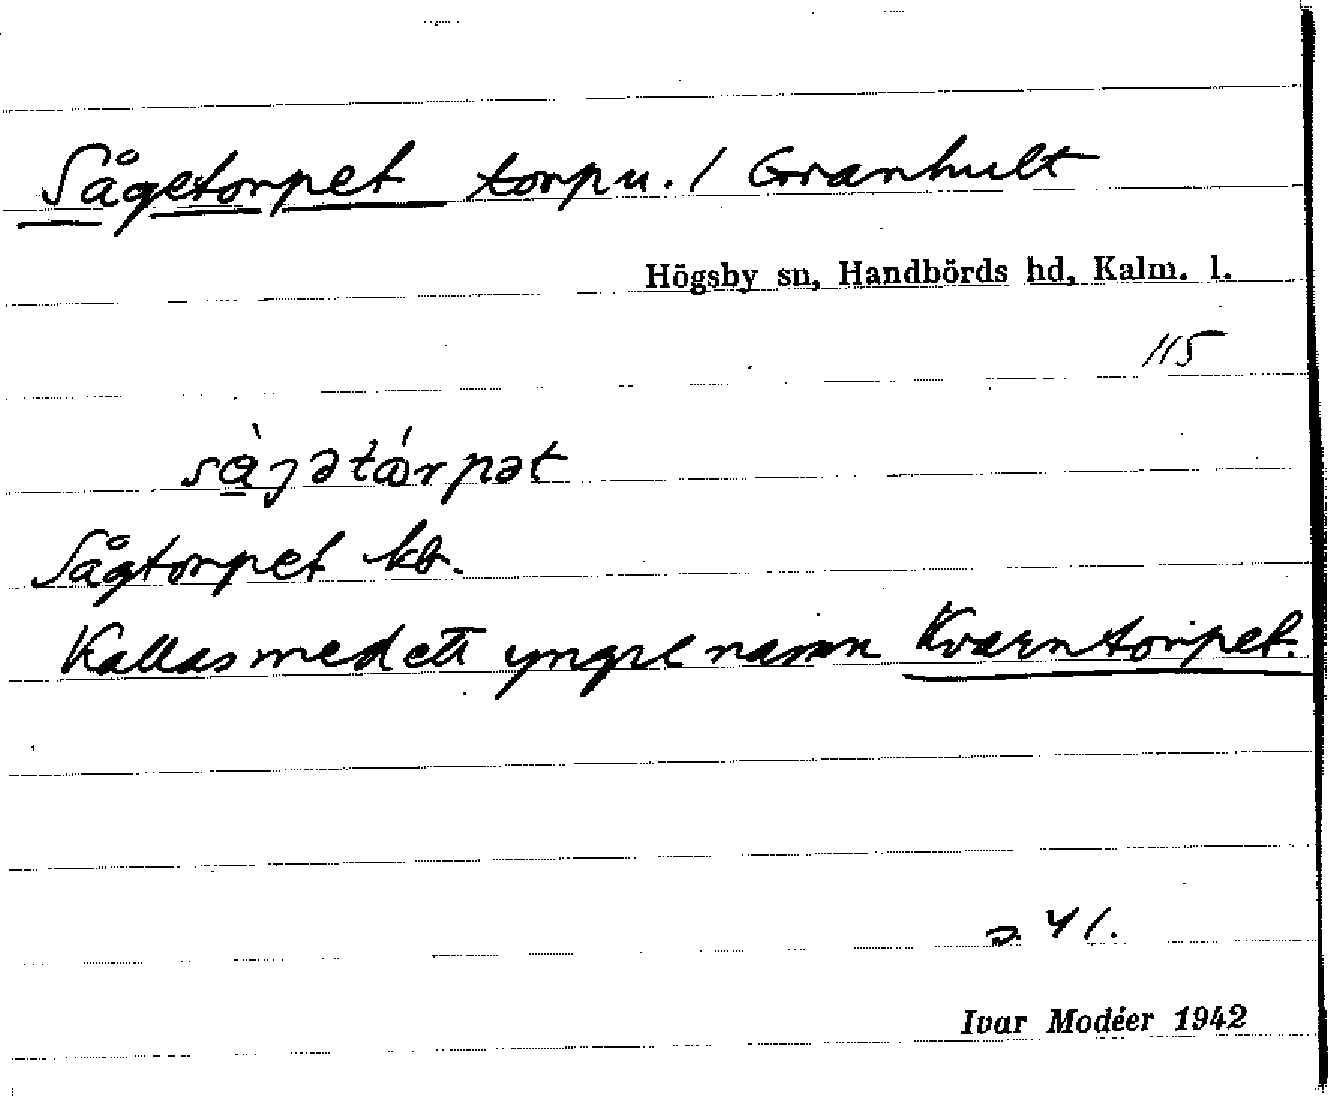 Sågetorpet torp u. / Granhult
Högsby sn, Handbörds hd, Kalm. l.
115
Sågtorpet kb.
Kallas med ett yngre namn Kvarntorpet.
41.
Ivar Modéer 1942